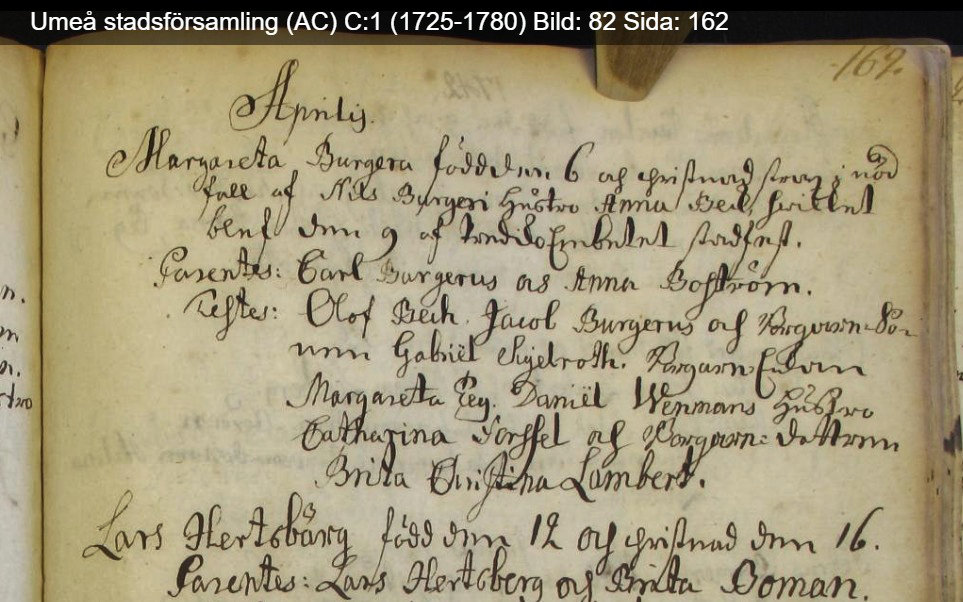 Umeå stadsförsamling (AC) C:1 (1725-1780) Bild: 82 Sida: 162
162.
Aprilis.
Margareta Burgera född den 6 och christnad strax i nöd
fall af Nils Burgeri Hustro Anna Beck, hvilket
blef den 9 af Predikoembetet stadfest.
Parentes: Carl Burgerus och Anna Boström.
Testes: Olof Beck. Jacob Burgerus och Borgaren-Så-
nen Gabriel. Borgaren Enkan
Margareta Daniel Wenmans Hustro
Catharina Forssel och Borgare: dottren
Brita Christina Lambert.
Lars Hertsbärg född den 12 och christnad den 16.
Parentes: Lars Hertsberg och Brita Soman.